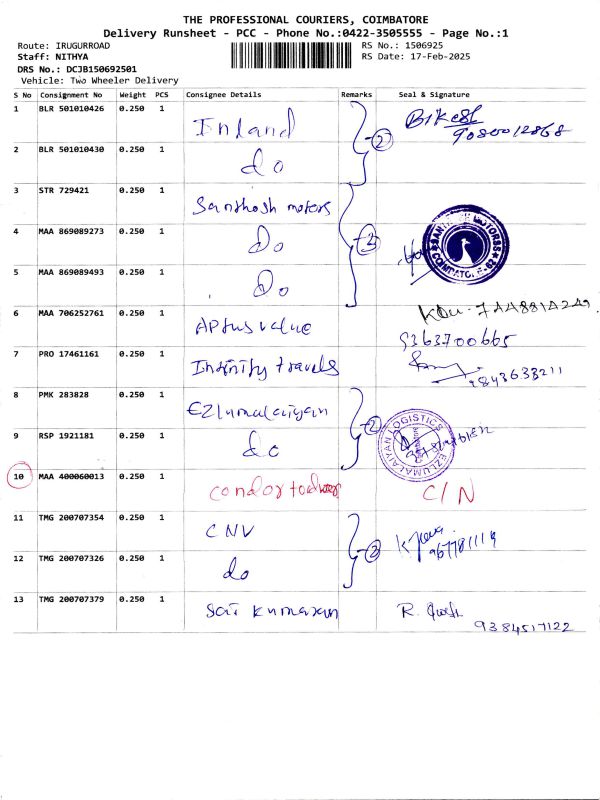 THE PROFESSIONAL COURIERS, COIMBATORE
Delivery Runsheet - PCC - Phone No.:0422-3505555 - Page No.:1
Route: IRUGURROAD RS No.: 1506925
Staff: NITHYA RS Date: 17-Feb-2025
DRS No.: DCJB150692501
Vehicle: Two Wheeler Delivery
S No Consignment No Weight PCS Consignee Details Remarks Seal & Signature
1 BLR 501010426 0.250 1 Inland 2 Bikesh
9080012868
2 BLR 501010430 0.250 1 do
3 STR 729421 0.250 1 Santhosh motors
4 MAA 869089273 0.250 1 Do
5 MAA 869089493 0.250 1 Do
6 MAA 706252761 0.250 1 Aptus value
9363700665
7 PRO 17461161 0.250 1 Infinity travels
9843633211
8 PMK 283828 0.250 1 Ezlumalaiyan 2 EZLUMALAIYAN LOGISTICS
9 RSP 1921181 0.250 1 do
10 MAA 400060013 0.250 1 condor C/N
11 TMG 200707354 0.250 1 CNV 2
12 TMG 200707326 0.250 1 do
13 TMG 200707379 0.250 1 Sai kumaran R.
9384517122